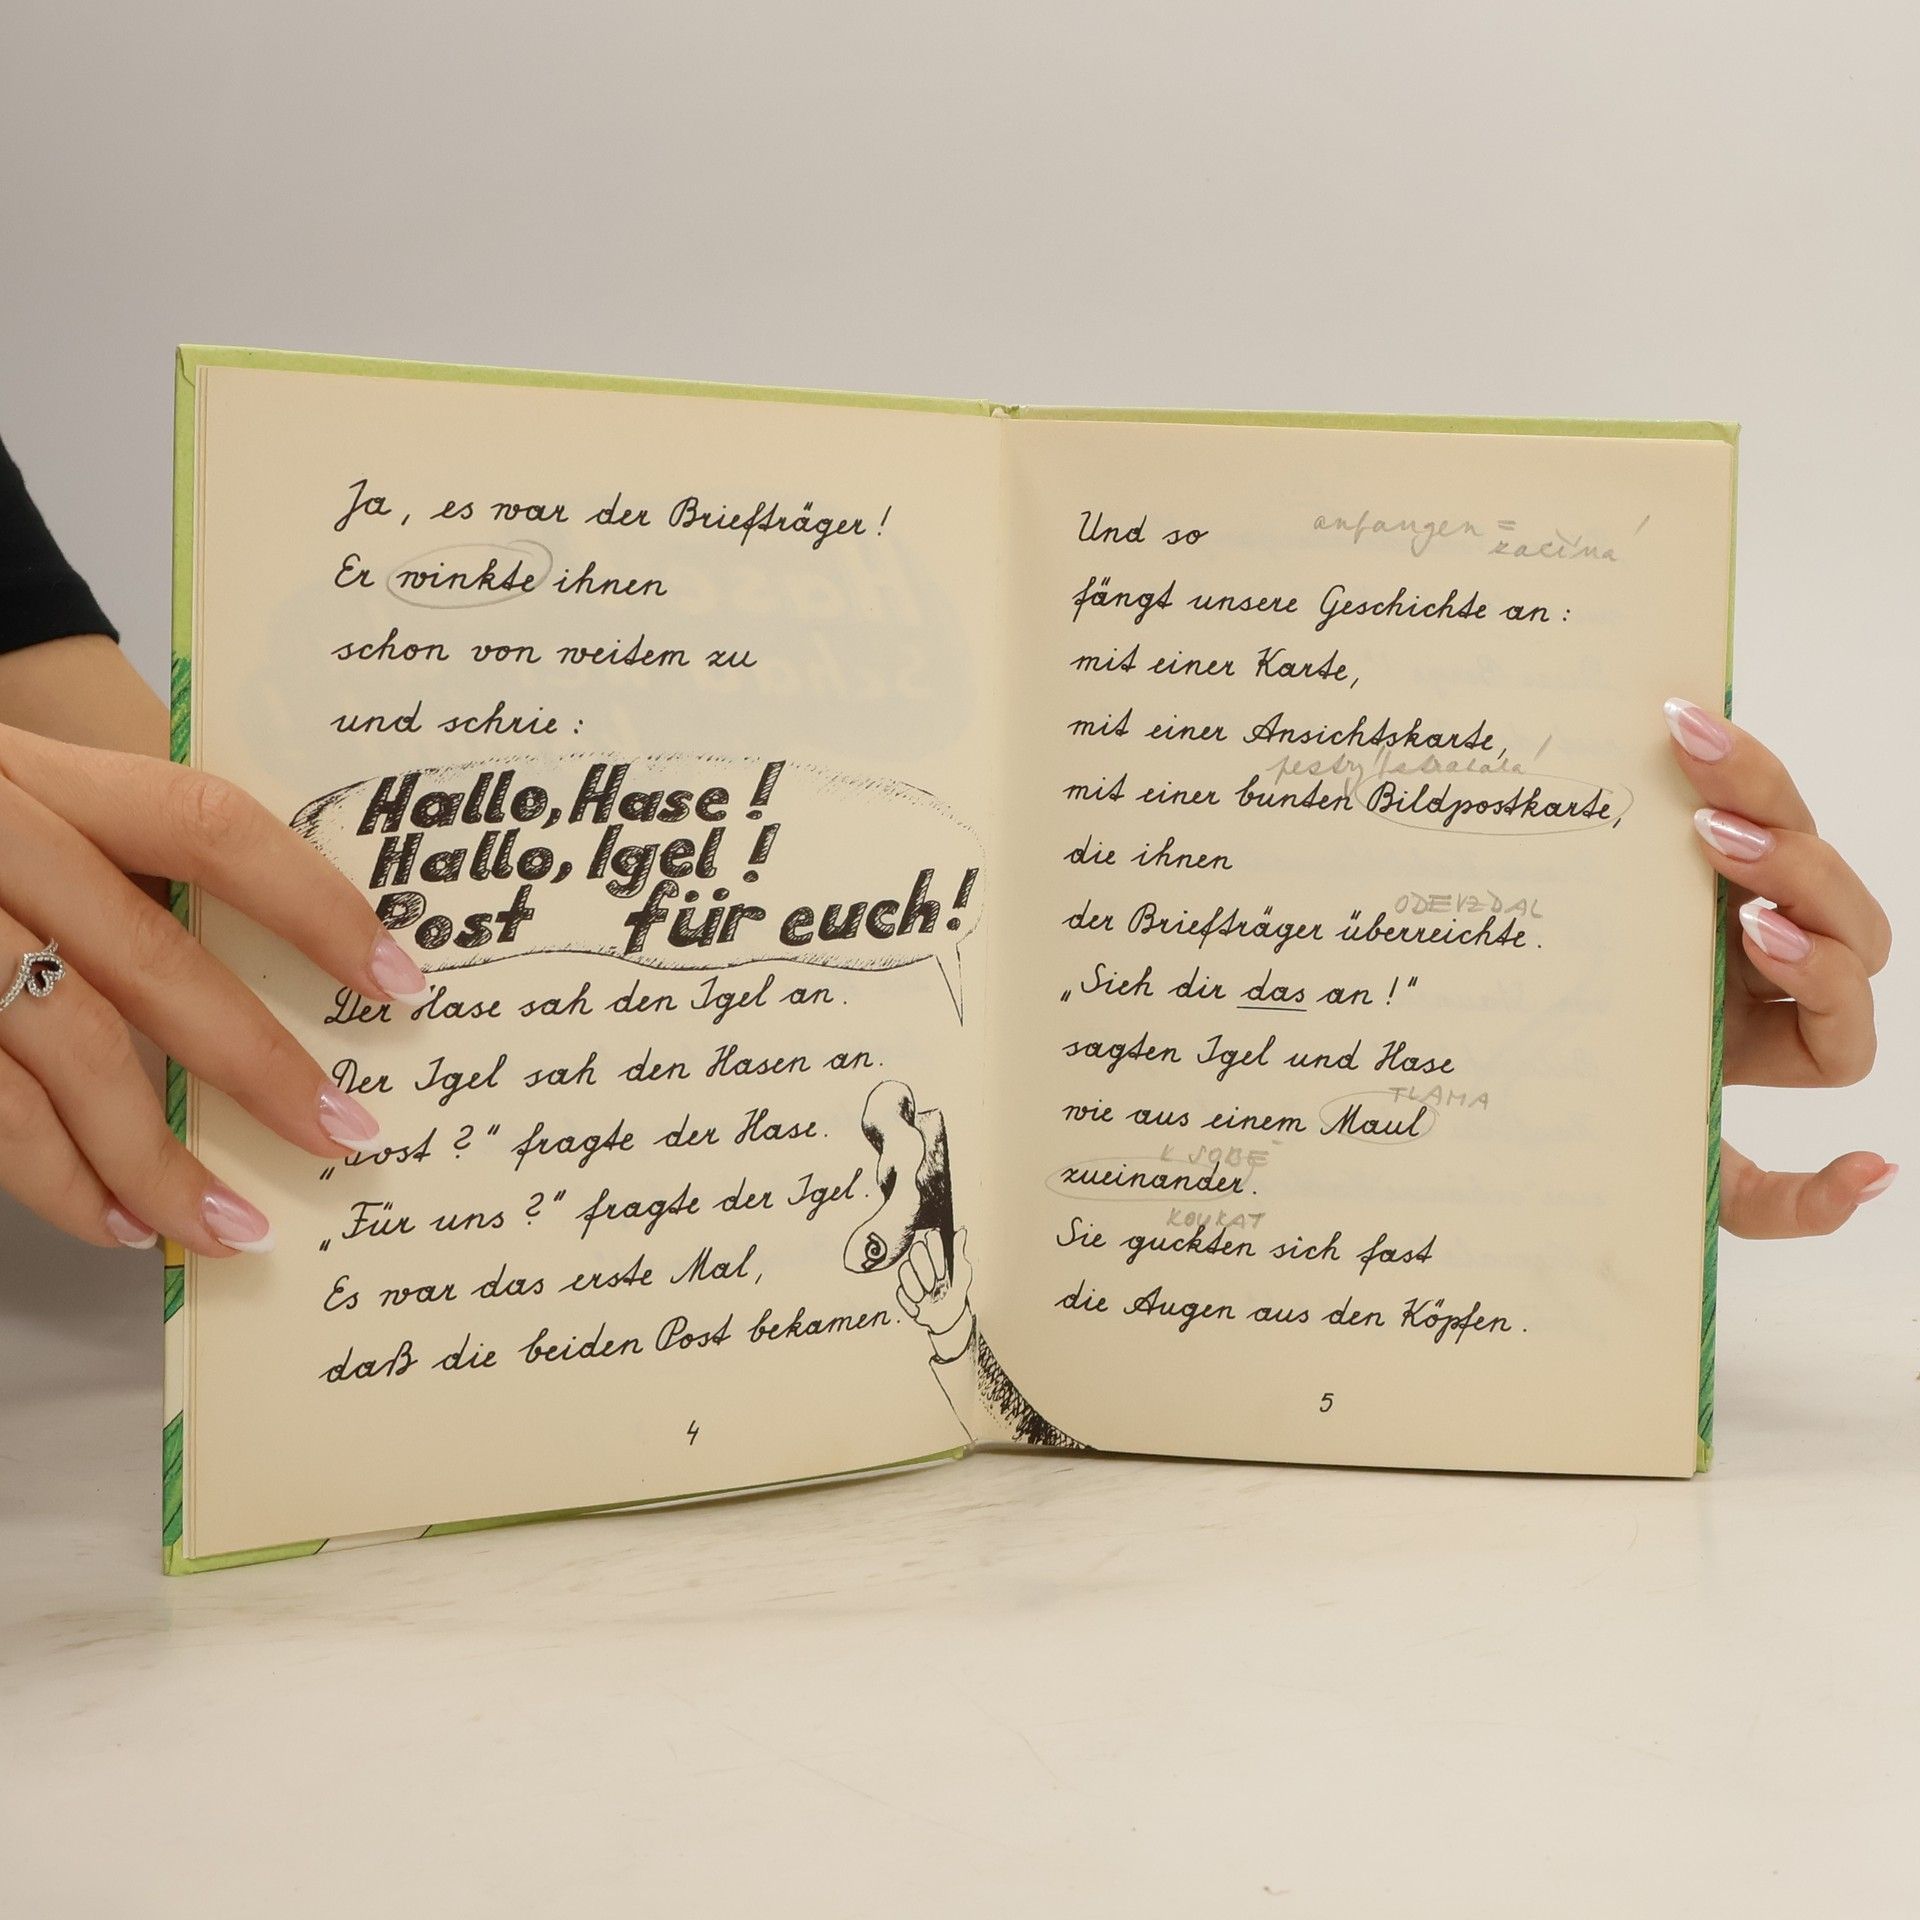 Ja, es war der Briefträger!
Er winkte ihnen
schon von weitem zu
und schrie:
Hallo, Hase!
Hallo, Igel!
Post für euch!
Der Hase sah den Igel an.
Der Igel sah den Hasen an.
„Post?" fragte der Hase.
„Für uns?" fragte der Igel.
Es war das erste Mal,
daß die beiden Post bekamen.
4
Und so
anfangen =
začíná
fängt unsere Geschichte an:
mit einer Karte,
mit einer Ansichtskarte,
pestrý
mit einer bunten Bildpostkarte,
die ihnen
ODEVZDAL
der Briefträger überreichte.
„Sieh dir das an!"
sagten Igel und Hase
TLAMA
wie aus einem Maul
K SOBĚ
zueinander.
KOUKAT
Sie guckten sich fast
die Augen aus den Köpfen.
5